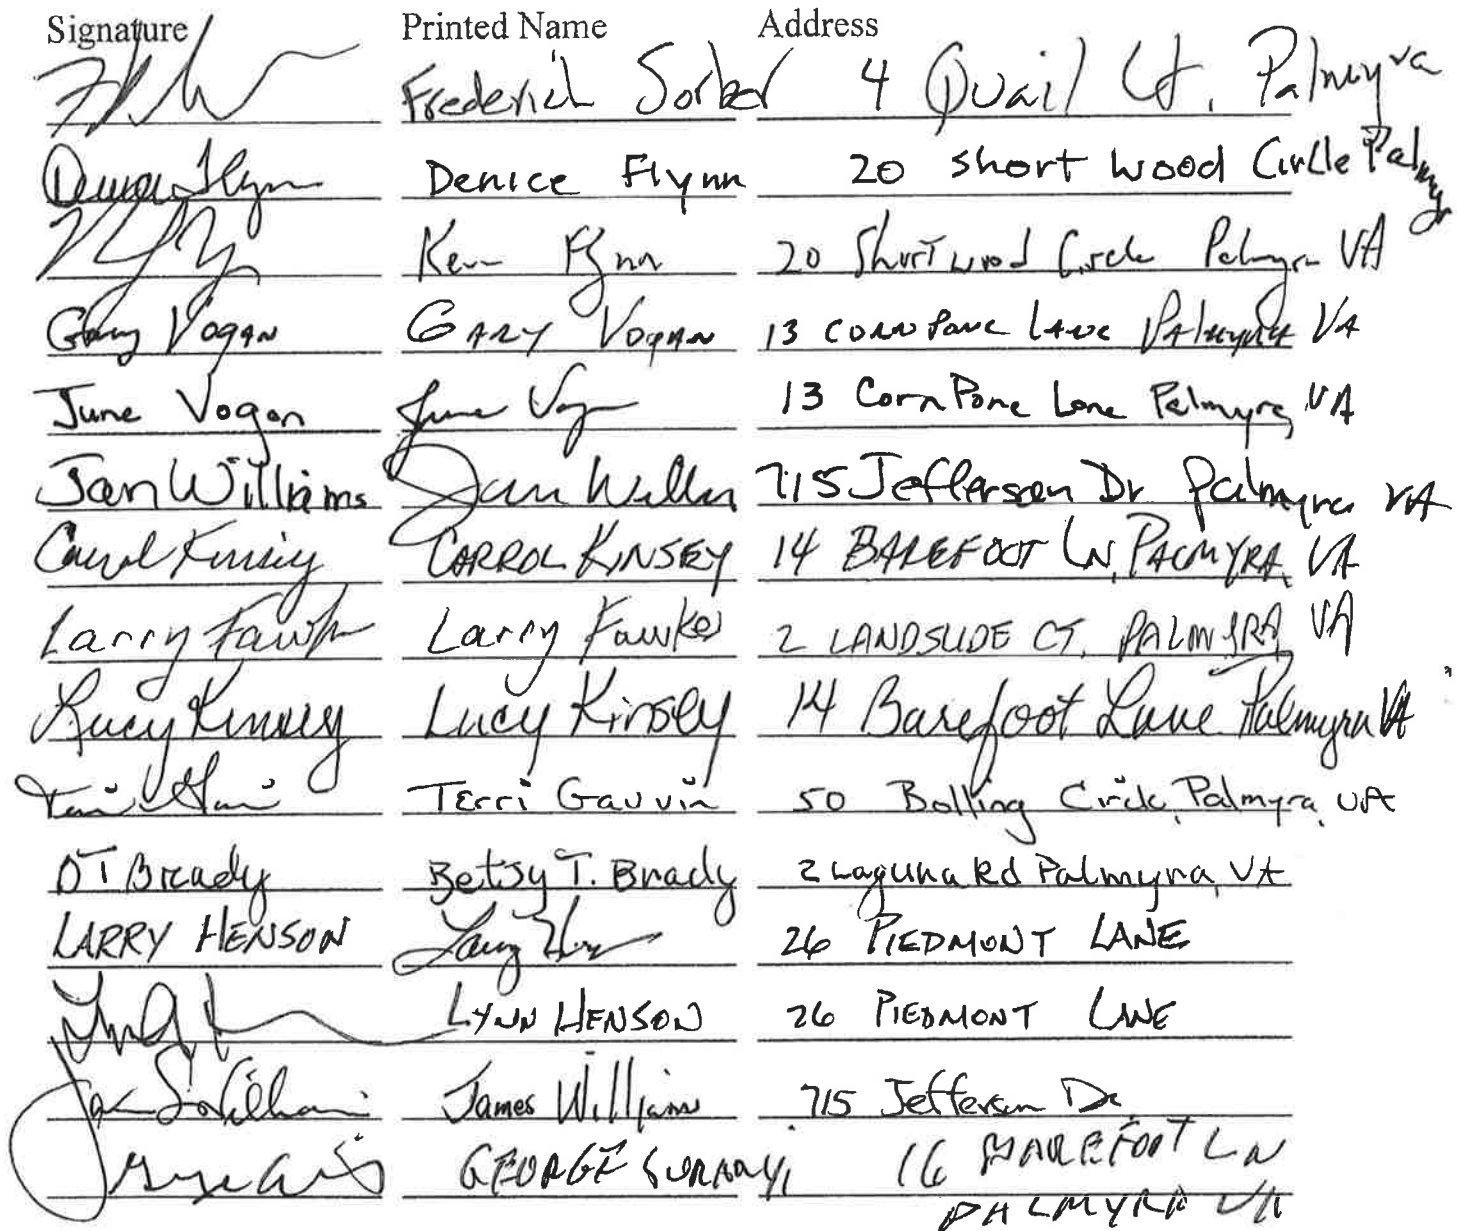 Signature Printed Name Address
Frederich Sorber 4 Quail Ct. Palmyra
Denice Flynn Denice Flynn 20 short wood Circle Palmyra
Flynn 20 Shortwood Circle Palmyra VA
Gary Vogan GARY VOGAN 13 CORN PONE LANE PALMYRA VA
June Vogan June Vogan 13 Corn Pone Lane Palmyra, VA
Jan Williams Jan Williams 715 Jefferson Dr Palmyra VA
Carrol Kinsey CARROL KINSEY 14 BAREFOOT LN, PALMYRA, VA
Larry Fawkes Larry Fawkes 2 LANDSLIDE CT. PALMYRA VA
Lucy Kinsey Lucy Kinsey 14 Barefoot Lane Palmyra VA
Terri Gauvin 50 Bolling Circle, Palmyra, VA
BT Brady Betsy T. Brady 2 Laguna Rd Palmyra, VA
LARRY HENSON Larry 26 PIEDMONT LANE
LYNN HENSON 26 PIEDMONT LANE
James Williams 715 Jefferson Dr
GEORGE 16 BAREFOOT LN
PALMYRA VA